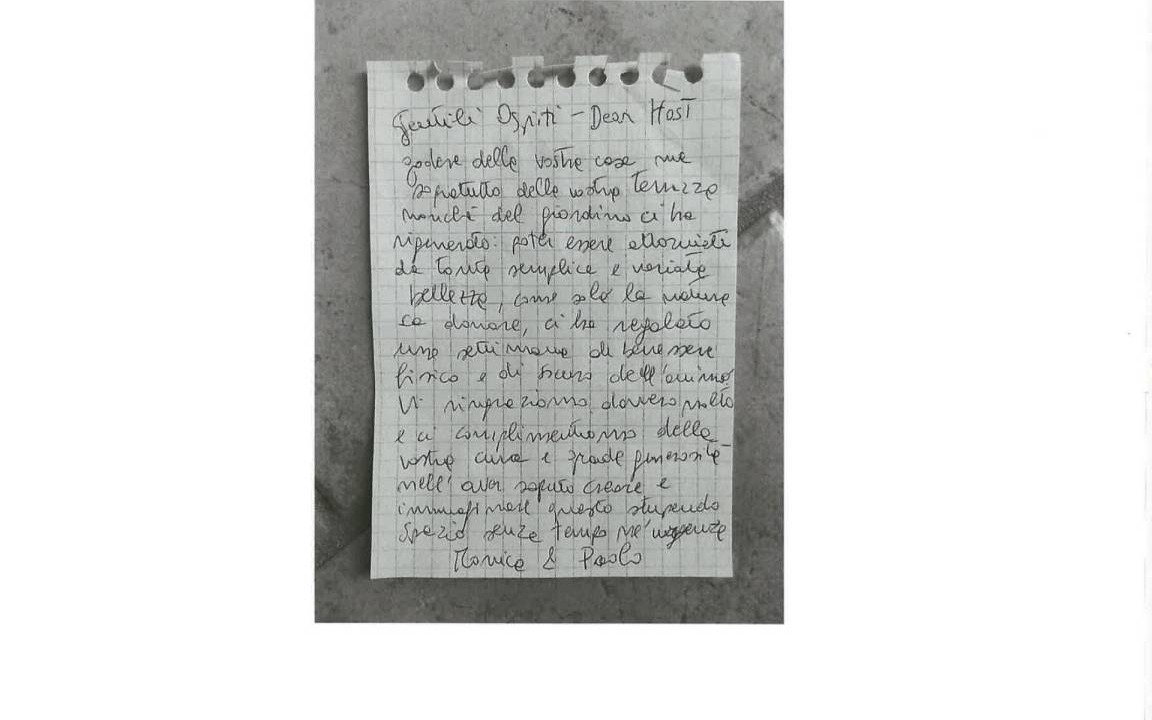 Gentili Ospiti - Dear Host
godere della vostra casa ma
sopratutto della vostra terrazza
nonchè del giardino ci ha
rigenerato: poter essere attorniati
da tanta semplice e variata
bellezza, come solo la natura
sa donare, ci ha regalato
una settimana di benessere
fisico e di dell'animo
Vi ringraziamo davvero molto
e ci complimentiamo della
vostra cura e grade generosità
nell'aver saputo creare e
immaginare questo stupendo
spazio senza tempo né urgenze
Monica & Paolo